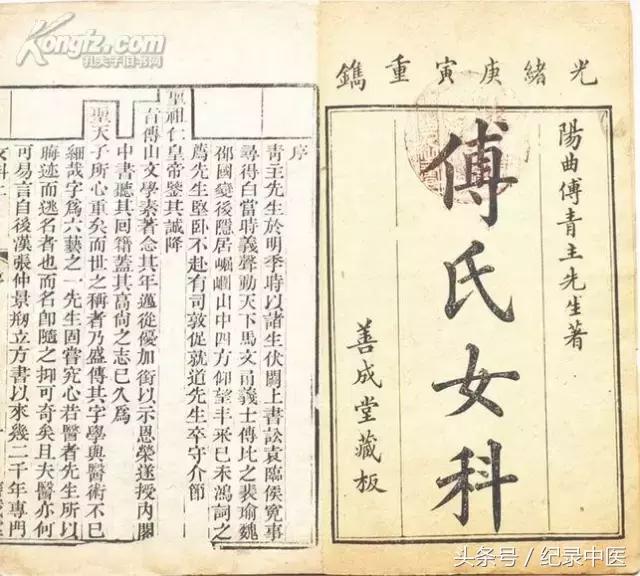 光緒庚寅重鐫
陽曲傅青主先生著
傅氏女科
善成堂藏板
序
青主先生於明季時以諸生伏闕上書訟袁臨侯冤事
尋得白當時義聲動天下馬文甬義士傳比之裴瑜魏
邵國變後隱居崛𡼿山中四方仰望丰采己未鴻詞之
薦先生堅卧不赴有司敦促就道先生卒守介節
聖祖仁皇帝鑒其誠降
旨傅山文學素著念其年邁從優加銜以示恩榮遂授內閣
中書聽其回籍蓋其高尙之志已久爲
聖天子所心重矣而世之稱者乃盛傳其字學與醫術不已
細哉字爲六藝之一先生固嘗究心若醫者先生所以
晦迹而逃名者也而名卽隨之抑可奇矣且夫醫亦何
可易言自後漢張仲景剏立方書以來幾二千年專門
女科上
序
Kongfz.com
孔夫子旧书网
头条号/纪录中医